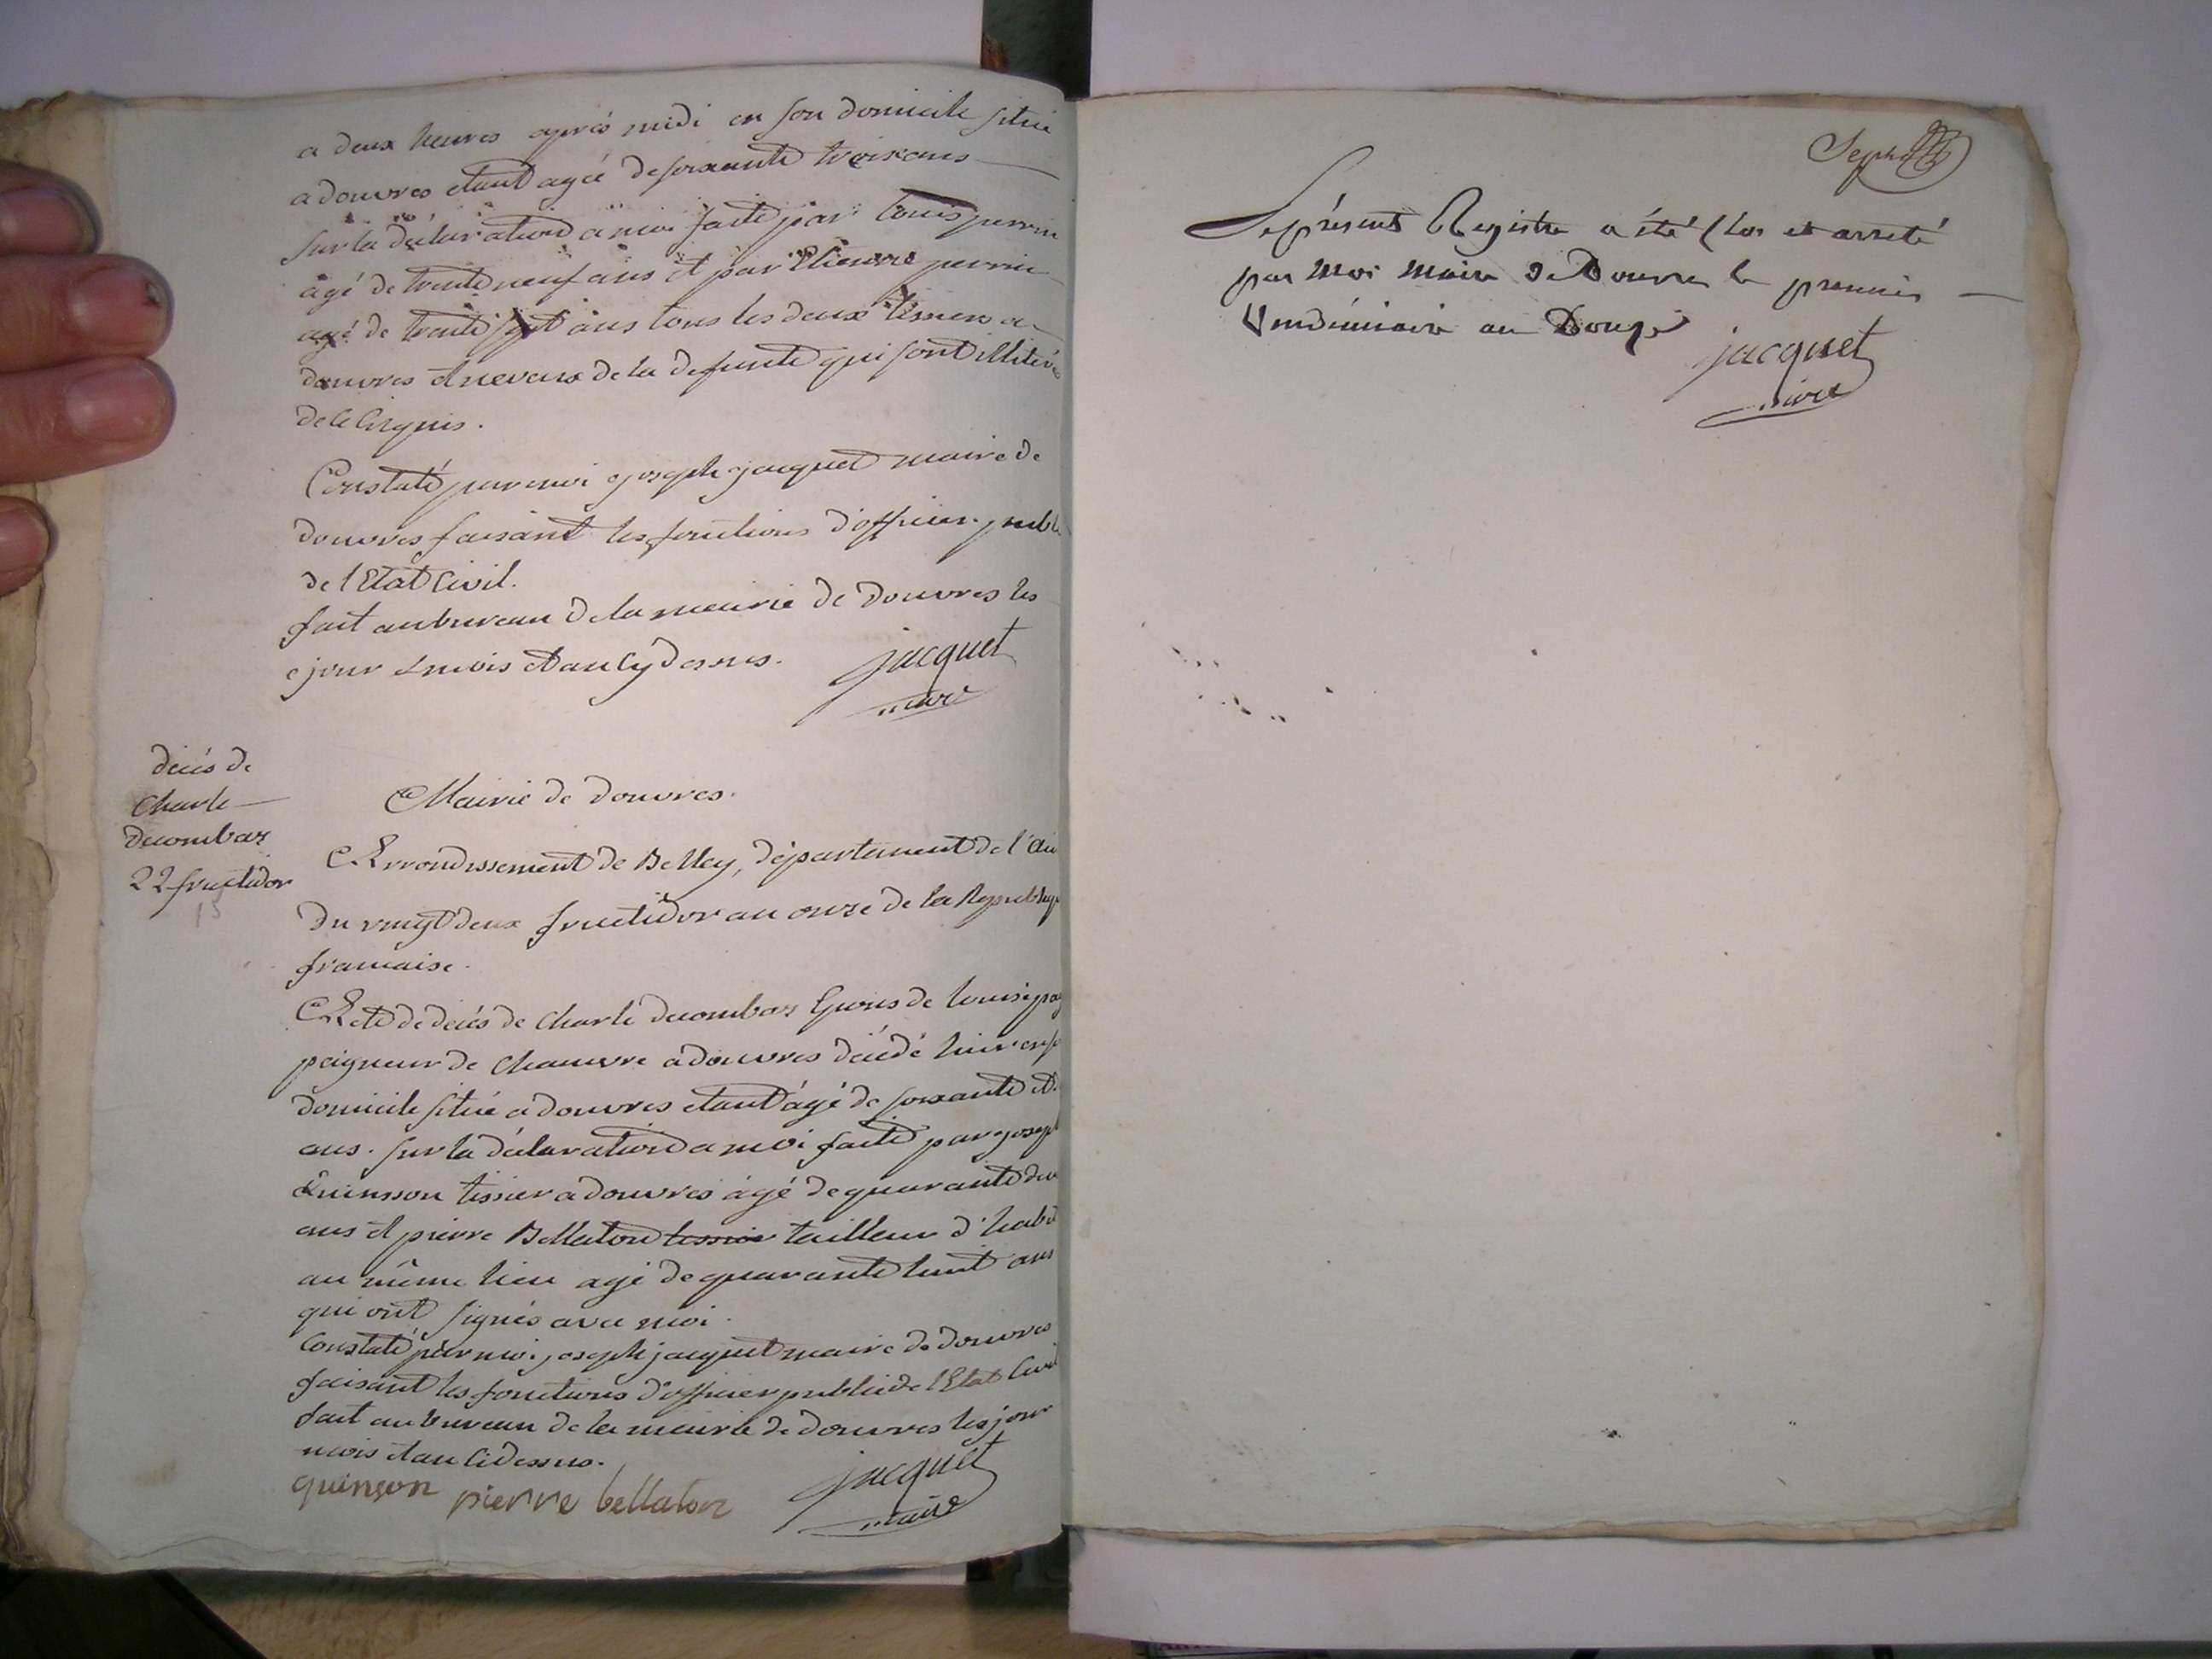 a deux heures après midi en son domicile situé
a douvres etant agée de soixante trois ans
sur la déclaration a moi faite par Louis perrin
agé de trente neuf ans et par Etienne perrin
agé de trente sept ans tous les deux tissier a
douvres et neveux de la defunte qui sont illitéré
de ce enquis.
Constaté par moi joseph jacquet maire de
douvres faisant les fonctions d'officier publi
de l'Etat Civil.
fait au bureau de la mairie de douvres les
jour mois et an cy dessus.
jacquet
maire
décés de
Charle
decombas
22 fructidor
Mairie de douvres.
Arrondissement de Belley, département de l'ain
du vingt deux fructidor an onze de la Republiqu
francaise.
Acte de décés de Charle decombas Epoux de Louise
peigneur de chanvre a douvres décédé hier en
domicile situé a douvres etant agé de soixante et
ans. sur la déclaration a moi faite par joseph
Quinsson tissier a douvres agé de quarante deux
ans et pierre Bellaton tissier tailleur d'habit
au même lieu agé de quarante huit ans
qui ont signés avec moi.
Constaté par moi joseph jacquet maire de douvres
faisant les fonctions d'officier public de l'Etat Civil
fait au bureau de la mairie de douvres les jour
mois et an ci dessus.
quinson pierre bellaton
jacquet
maire
Le présent Registre a été Clos et arreté
par moi maire de Douvres le premier
Vendémiaire an Douze
jacquet
maire